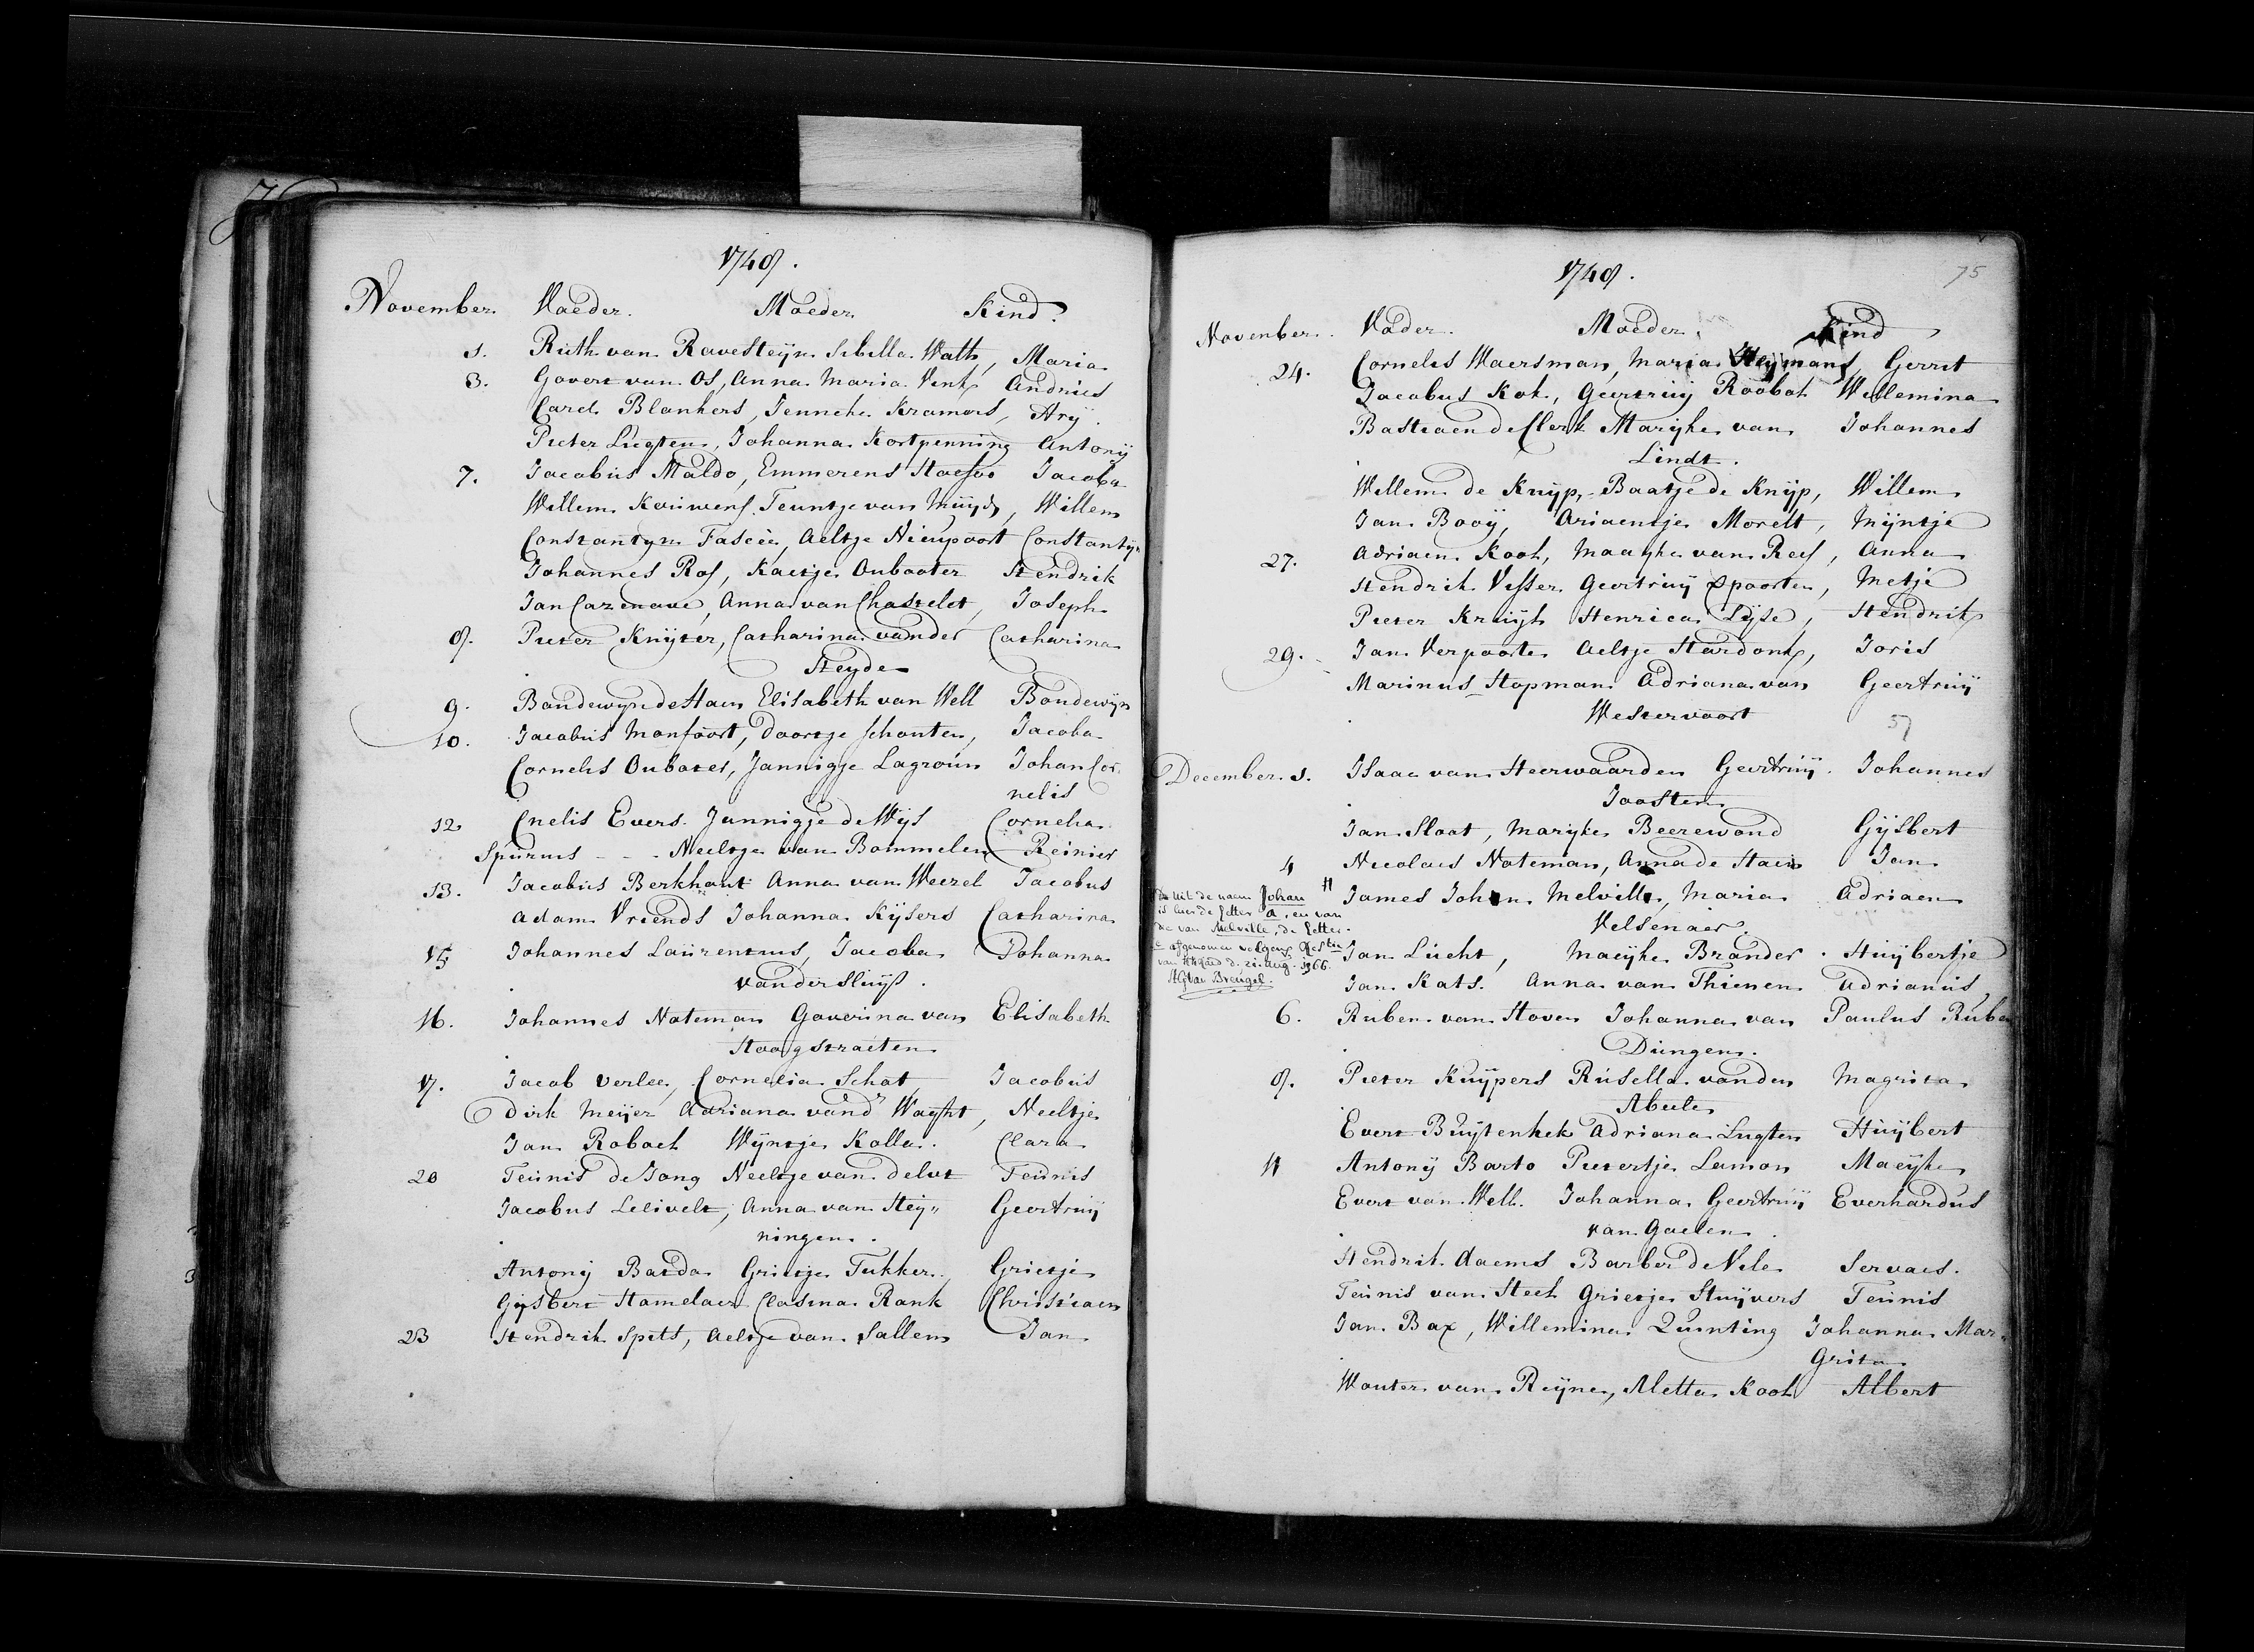 1748.
November. Vaeder. Moeder. Kind.
1. Ruth van Ravesteijn Sibilla Wath, Maria
3. Govert van Os, Anna Maria Vink, Andries
Carel Blankers, Jenneke Kramers, Arij.
Pieter Lugten, Johanna Kortpenning Antonij
7. Jacobus Maldo, Emmerens Jacoba
Willem Kouwens, Teuntje van Muijd, Willem
Constantyn Fascée, Aeltje Nieupoort Constantijn
Johannes Ros, Kaetje Oubooter Hendrik
Jan Cazenave, Anna van Chastelet, Joseph
8. Pieter Knijter, Catharina vander Catharina
Heyde
9. Boudewijn de Haen Elisabeth van Well Boudewijn
10. Jacobus Monfoort, Doortje Schouten, Jacoba
Cornelis Ouboter, Jannigje Lagrouw Johan Cor
nelis
12 Cnelis Evers. Jannigje de Wijs Cornelia
Spurius - - - Neeltje van Bommelen Reinier
13. Jacobus Berkhout Anna van Weezel Jacobus
Adam Vriends Johanna Kijsers Catharina
15 Johannes Laurentius, Jacoba Johanna
vander Sluijs.
16. Johannes Noteman Goverina van Elisabeth
Hoogstraeten
17. Jacob Verlee, Cornelia Schot, Jacobus
Dirk Meijer Adriana vandr Waght, Neeltje
Jan Roboch Wijntje Kolla. Clara
20 Teunis de Jong Neeltje van delvt Teunis
Jacobus Lelivelt, Anna van Hey" Geertruij
ningen.
Antonij Barda Grietje Tukker. Grietje
Gijsbert Hamelaer Clasina Rank Christiaen
23 Hendrik Spits, Aeltje van Sallem Jan
1748.
75
November. Vader. Moeder. Kind
24. Cornelis Waersman, Maria Heymans, Gerrit
Jacobus Kok, Geertruij Roobol Willemina
Bastiaen de Clerk Marijke van Johannes
Lindt.
Willem de Knijp, Baatje de Knijp, Willem
Jan Booij, Ariaentje Morelt, Mijntje
27. Adriaen Kool, Maayke van Rees, Anna
Hendrik Visser Geertruij Spoorten, Metje
Pieter Kruijk Henrica Lijse, Hendrik
29. Jan Verpoorte Aeltje Hardonk, Joris
Marinus Hopman Adriana van Geertruij
Westervoort
57
December. 1. Isaac van Heerwaarden Geertruij Johannes
Joosten
Jan Sloot, Marijke Beerewoud Gijsbert
4 Nicolaes Noteman, Anna de Haen Jan
H James John Melvill, Maria Adriaen
Velsenaer.
Uit de naem Johan
is hier de Letter a, en van
die van Melville, de Letter
e afgenomen volgens
Jan Lucht, Maeijke Brander. Huijbertje
Jan Kats. Anna van Thienen Adrianus
6. Ruben van Hoven Johanna van Paulus Ruben
Dungen.
8. Pieter Kuijpers Rusella vanden Magrita
Abeele
Evert Buijtenhek Adriana Lugten Huijbert
11 Antonij Barto Pietertje Lamon Maeijke
Evert van Well. Johanna Geertruij Everhardus
van Gaelen.
Hendrik Aaems Barber de Vele Servaes.
Teunis van Steel Grietje Stuijvers Teunis
Jan Bax, Willemina Quinting Johanna Mar=
Grita
Wouter van Reijne, Aletta Kool Albert